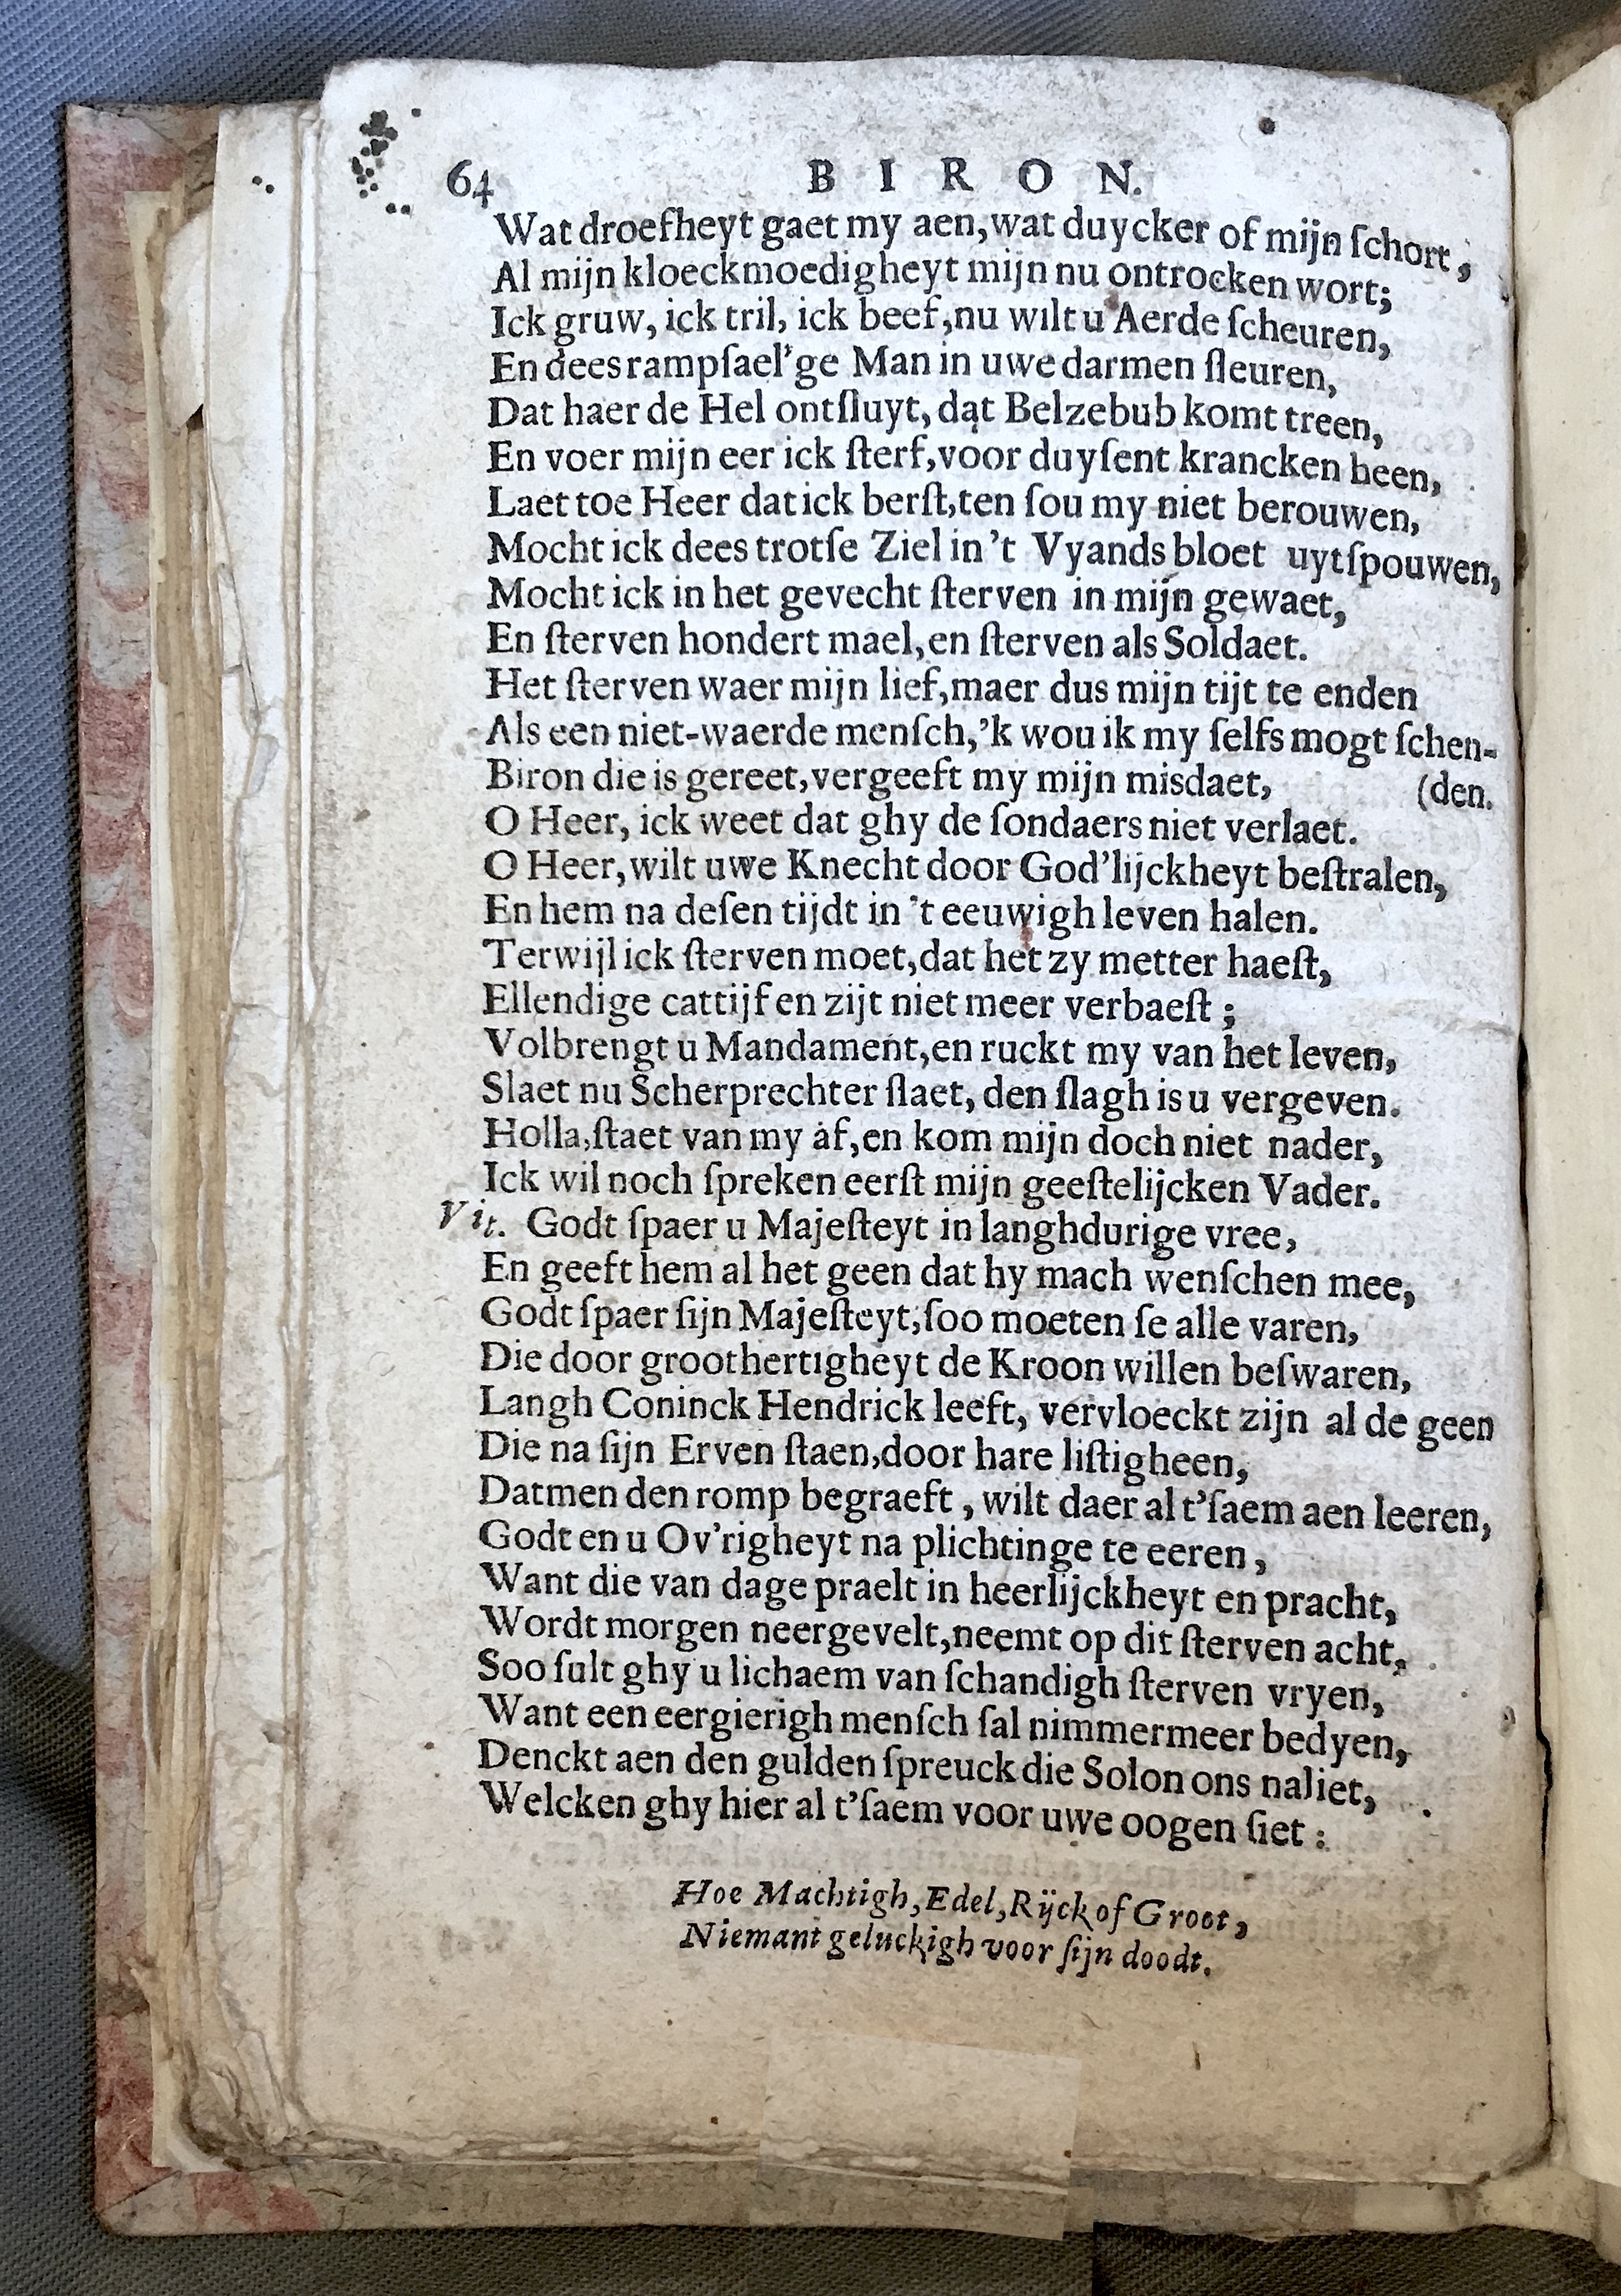 64 BIRON.
Wat droefheyt gaet my aen, wat duycker of mijn ſchort,
Al mijn kloeckmoedigheyt mijn nu ontrocken wort;
Ick gruw, ick tril, ick beef, nu wilt u Aerde ſcheuren,
En dees rampſael'ge Man in uwe darmen ſleuren,
Dat haer de Hel ontſluyt, dat Belzebub komt treen,
En voer mijn eer ick ſterf, voor duyſent krancken heen,
Laet toe Heer dat ick berſt, ten ſou my niet berouwen,
Mocht ick dees trotſe Ziel in 't Vyands bloet uytſpouwen,
Mocht ick in het gevecht ſterven in mijn gewaet,
En ſterven hondert mael, en ſterven als Soldaet.
Het ſterven waer mijn lief, maer dus mijn tijt te enden
Als een niet-waerde menſch, 'k wou ik my ſelfs mogt ſchen-
Biron die is gereet, vergeeft my mijn misdaet, (den.
O Heer, ick weet dat ghy de ſondaers niet verlaet.
O Heer, wilt uwe Knecht door God'lijckheyt beſtralen,
En hem na deſen tijdt in 't eeuwigh leven halen.
Terwijl ick ſterven moet, dat het zy metter haeſt,
Ellendige cattijf en zijt niet meer verbaeſt;
Volbrengt u Mandament, en ruckt my van het leven,
Slaet nu Scherprechter ſlaet, den ſlagh is u vergeven.
Holla, ſtaet van my af, en kom mijn doch niet nader,
Ick wil noch ſpreken eerſt mijn geeſtelijcken Vader.
Vit. Godt ſpaer u Majeſteyt in langhdurige vree,
En geeft hem al het geen dat hy mach wenſchen mee,
Godt ſpaer ſijn Majeſteyt, ſoo moeten ſe alle varen,
Die door groothertigheyt de Kroon willen beſwaren,
Langh Coninck Hendrick leeft, vervloeckt zijn al de geen
Die na ſijn Erven ſtaen, door hare liſtigheen,
Datmen den romp begraeft, wilt daer al t'ſaem aen leeren,
Godt en u Ov'righeyt na plichtinge te eeren,
Want die van dage praelt in heerlijckheyt en pracht,
Wordt morgen neergevelt, neemt op dit ſterven acht,
Soo ſult ghy u lichaem van ſchandigh ſterven vryen,
Want een eergierigh menſch ſal nimmermeer bedyen,
Denckt aen den gulden ſpreuck die Solon ons naliet,
Welcken ghy hier al t'ſaem voor uwe oogen ſiet:
Hoe Machtigh, Edel, Rijck of Groot,
Niemant geluckigh voor ſijn doodt.